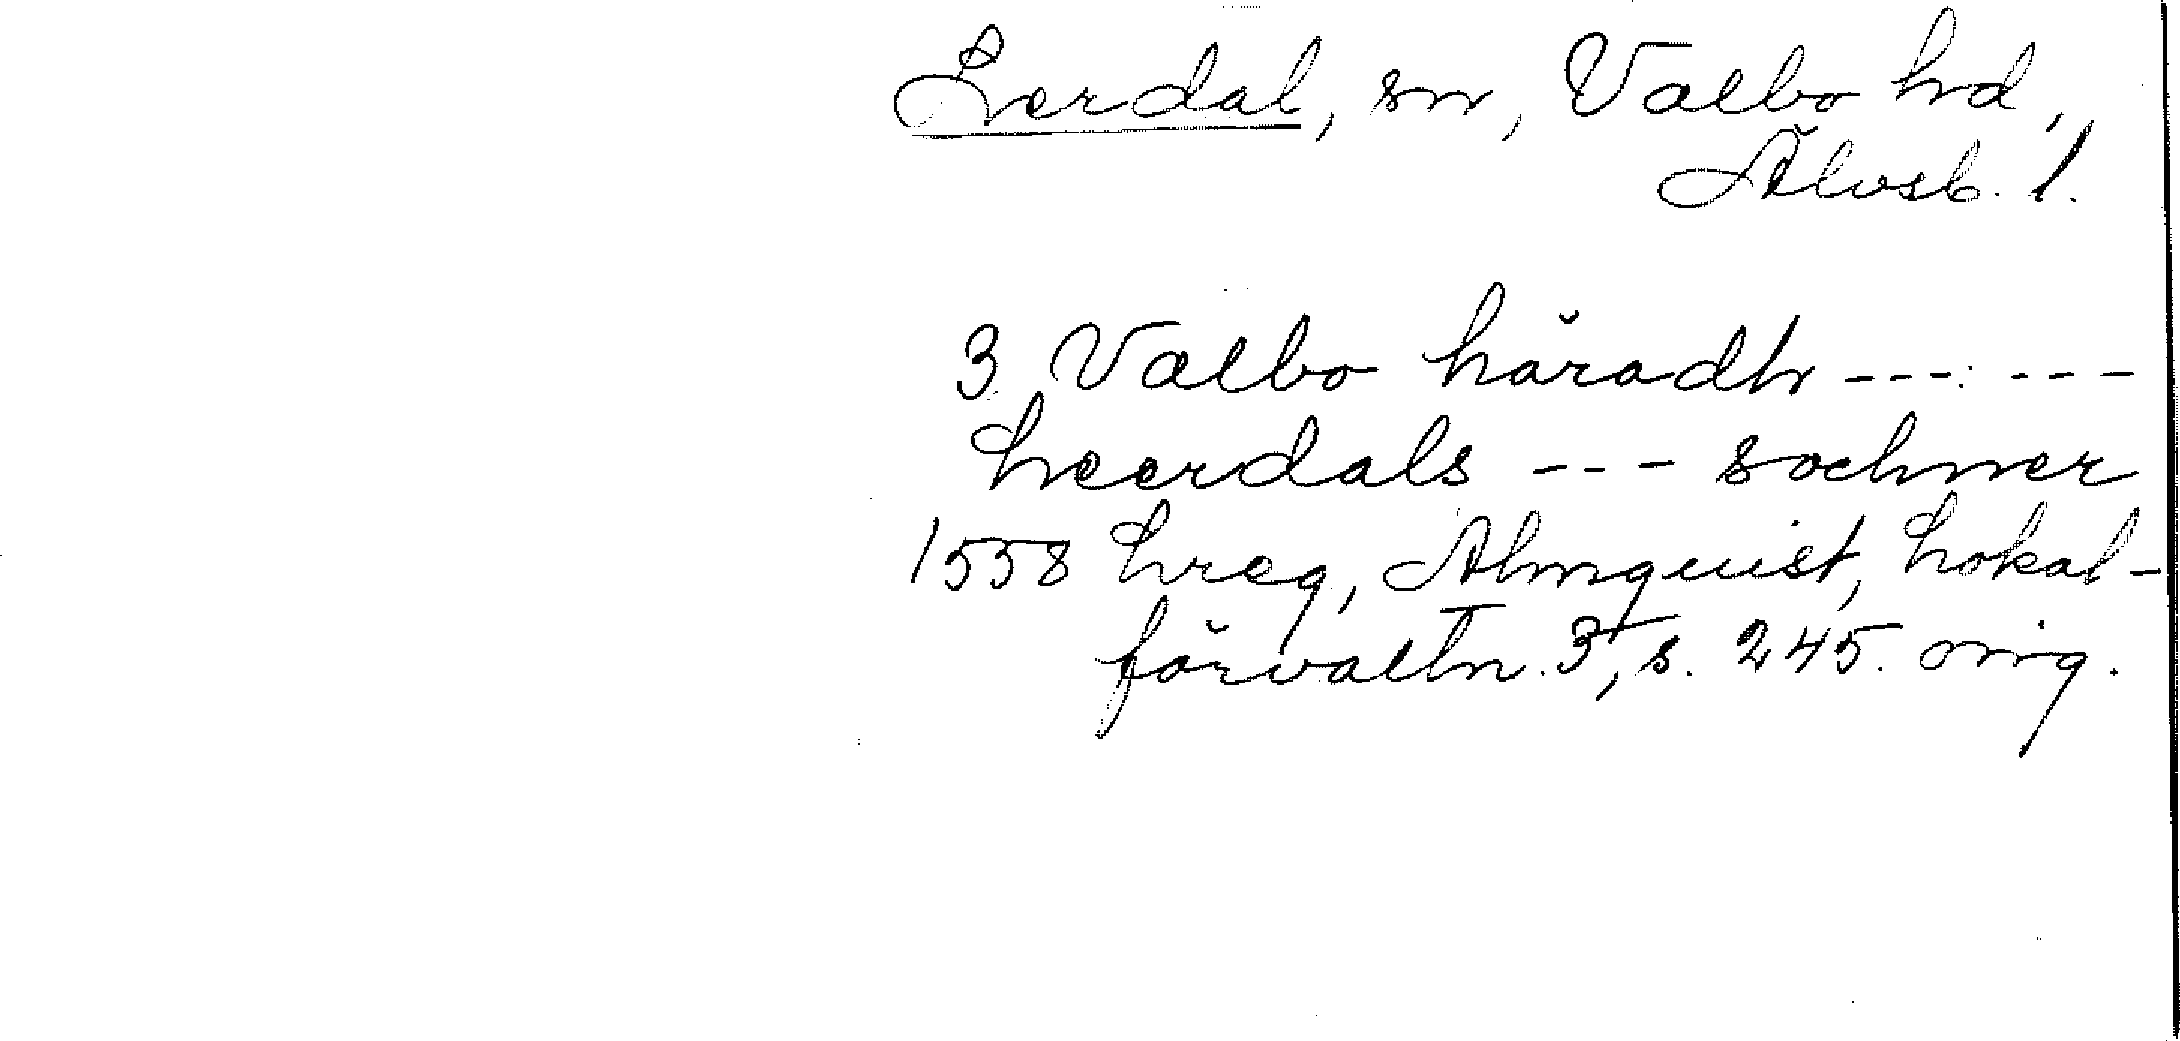 Lerdal, sn, Valbo hd,
Älvsb. l.
3 Valbo häradh ---:---
Leerdals --- sochner
1558 Lreg, Almquist, Lokal-
förvaltn. 3, s. 245. orig.